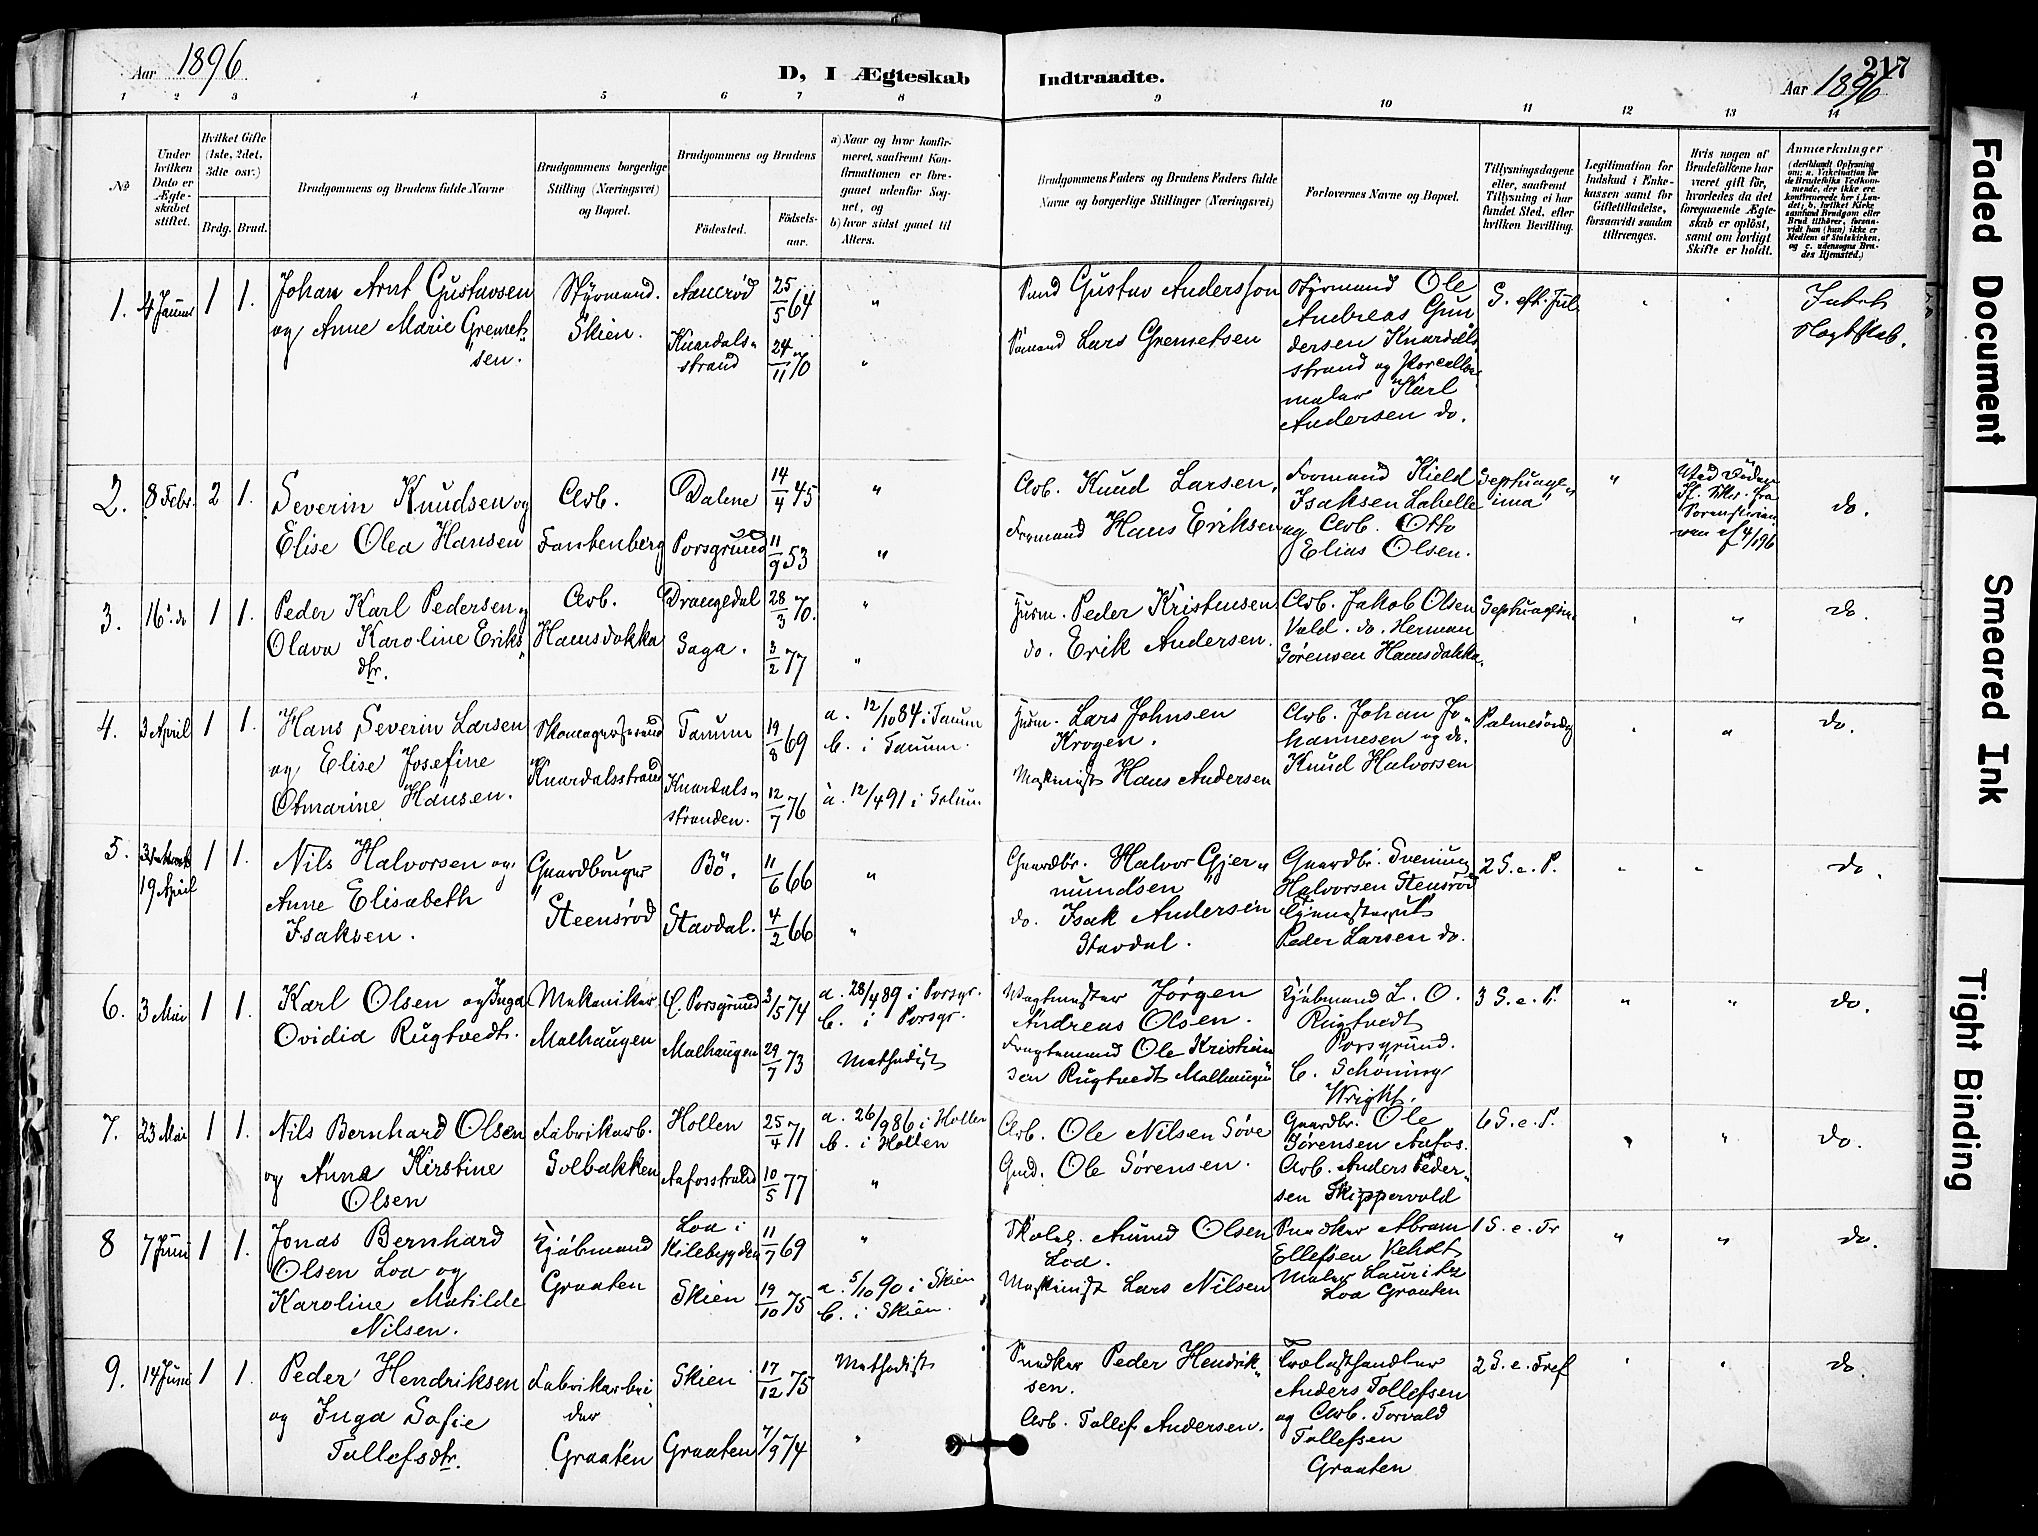 Aar 1896
D, I Ægteskab
Indtraadte.
217
Aar 1896
1 2 3 4 5 6 7 8 9 10 11 12 13 14
No
Under hvilken Dato er Ægteskabet stiftet.
Hvilket Gifte (1ste, 2det, 3die osv.)
Brdg. Brud.
Brudgommens og Brudens fulde Navne
Brudgommens borgerlige Stilling (Næringsvei) og Bopæl.
Brudgommens og Brudens
Födested.
Födsels-aar.
a) Naar og hvor konfirmeret, saafremt Konfirmationen er foregaaet udenfor Sognet, og
b) hvor sidst gaaet til Alters.
Brudgommens Faders og Brudens Faders fulde Navne og borgerlige Stillinger (Næringsvei)
Forlovernes Navne og Bopæl.
Tillysningsdagene eller, saafremt Tillysning ei har fundet Sted, efter hvilken Bevilling.
Legitimation for Indskud i Enkekassen samt for Giftetilladelse, forsaavidt saadan tiltrænges.
Hvis nogen af Brudefolkene har været gift før, hvorledes da det foregaaende Ægteskab er oplöst, samt om lovligt Skifte er holdt.
Anmærkninger
(deriblandt Oplysning om: a. Vakcination for de Brudefolks Vedkommende, der ikke ere konfirmerede her i Landet; b. hvilket Kirkesamfund Brudgom eller Brud tilhører, forsaavidt han (hun) ikke er Medlem af Statskirken, og c. udensogns Brudes Hjemsted.)
1. 4 Januar 1 1. Johan Arnt Gustavsen
og Anne Marie Gremetsen.
Styrmand.
Skien.
25/5 64
Knardalsstrand 24/11 70
Gustav Andersson
Lars Gremetsen
Styrmand Ole
Andreas Gundersen Knardalsstrand og
Karl
Andersen do.
S. eft. Jul
Intet
Slegtskab.
2. 8 Febr. 2 1. Severin Knudsen og
Elise Olea Hansen
Arb.
Dalene 14/4 45
Porsgrund 11/9 53
Arb. Knud Larsen,
Formand Hans Eriksen
Formand Kield
Isaksen Labelle
og Arb. Otto
Elias Olsen.
Septuagesima
do.
3. 16. do 1 1. Peder Karl Pedersen og
Olava Karoline Eriksdtr.
Arb.
Hamsdokka
Drangedal 28/3 70.
Saga. 3/2 77
Husm. Peder Kristensen
do. Erik Andersen.
Arb. Jakob Olsen
Vald. do. Herman
Sørensen Hamsdokka.
do.
4. 3 April 1 1. Hans Severin Larsen
og Elise Josefine
Otmarine Hansen.
Skomagersvend
Knardalsstrand
Tanum 19/8 69
Knardalsstranden. 12/7 76
a. 12/10 84 i Tanum
b. i Tanum.
a. 12/4 91 i Solum
Husm. Lars Johnsen
Krogen.
Maskinist Hans Andersen
Arb. Johan Johannesen og do.
Knud Halvorsen
Palmesöndag
do.
5. 19 April 1 1. Nils Halvorsen og
Anne Elisabeth
Isaksen.
Gaardbruger
Steensrød
Bö. 11/6 66
Stavdal. 4/2 66
Gaardbr. Halvor Gjermundsen
do. Isak Andersen
Stavdal.
Gaardbr. Svenung
Halvorsen Stensrød
Peder Larsen do.
2 S. e. P.
do.
6. 3 Mai 1 1. Karl Olsen og Inga
Ovidia Rugtvedt.
Mekaniker
Malhaugen
Ö. Porsgrund 3/5 74
Malhaugen 29/7 73
a. 28/4 89 i Porsgr.
b. i Porsgr.
Methodist
Vagtmester Jörgen
Andreas Olsen.
Fragtemand Ole Kristiansen Rugtvedt Malhaugen
Kjöbmand L. O.
Rugtvedt
Porsgrund.
C. Schöning
Wright.
3 S. e. P.
do.
7. 23 Mai 1 1. Nils Bernhard Olsen
og Anna Kirstine
Olsen
Fabrikarb.
Solbakken
Hollen 25/4 71
Aafosstrand 10/5 77
a. 26/9 86 i Hollen
b. i Hollen
Arb. Ole Nilsen Söve
Gmd. Ole Sörensen.
Gaardbr. Ole
Sörensen Aafos.
Arb. Anders Pedersen Skippervold
6 S. e. P.
do.
8 7 Juni 1 1. Jonas Bernhard
Olsen Loa og
Karoline Matilde
Nilsen.
Kjöbmand
Graaten
Loa i
Kilebygden 11/7 69
Skien 19/10 75
a. 5/10 90 i Skien
b. i Skien.
Amund Olsen
Loa.
Maskinist Lars Nilsen
Snedker Abram
Ellefsen
Maler Lauritz
Loa Graaten
1 S. e. Tr
do.
9. 14 Juni 1 1. Peder Hendriksen
og Inga Sofie
Tollefsdtr.
Fabrikarbeider
Graaten
Skien 17/12 75
Graaten 7/9 74
Methodist
Snedker Peder Hendriksen.
Arb. Tollef Andersen.
Trælasthandler
Anders Tollefsen
og Arb. Torvald
Tollefsen
Graaten
2 S. e. Tref
do
Faded Document
Smeared Ink
Tight Binding